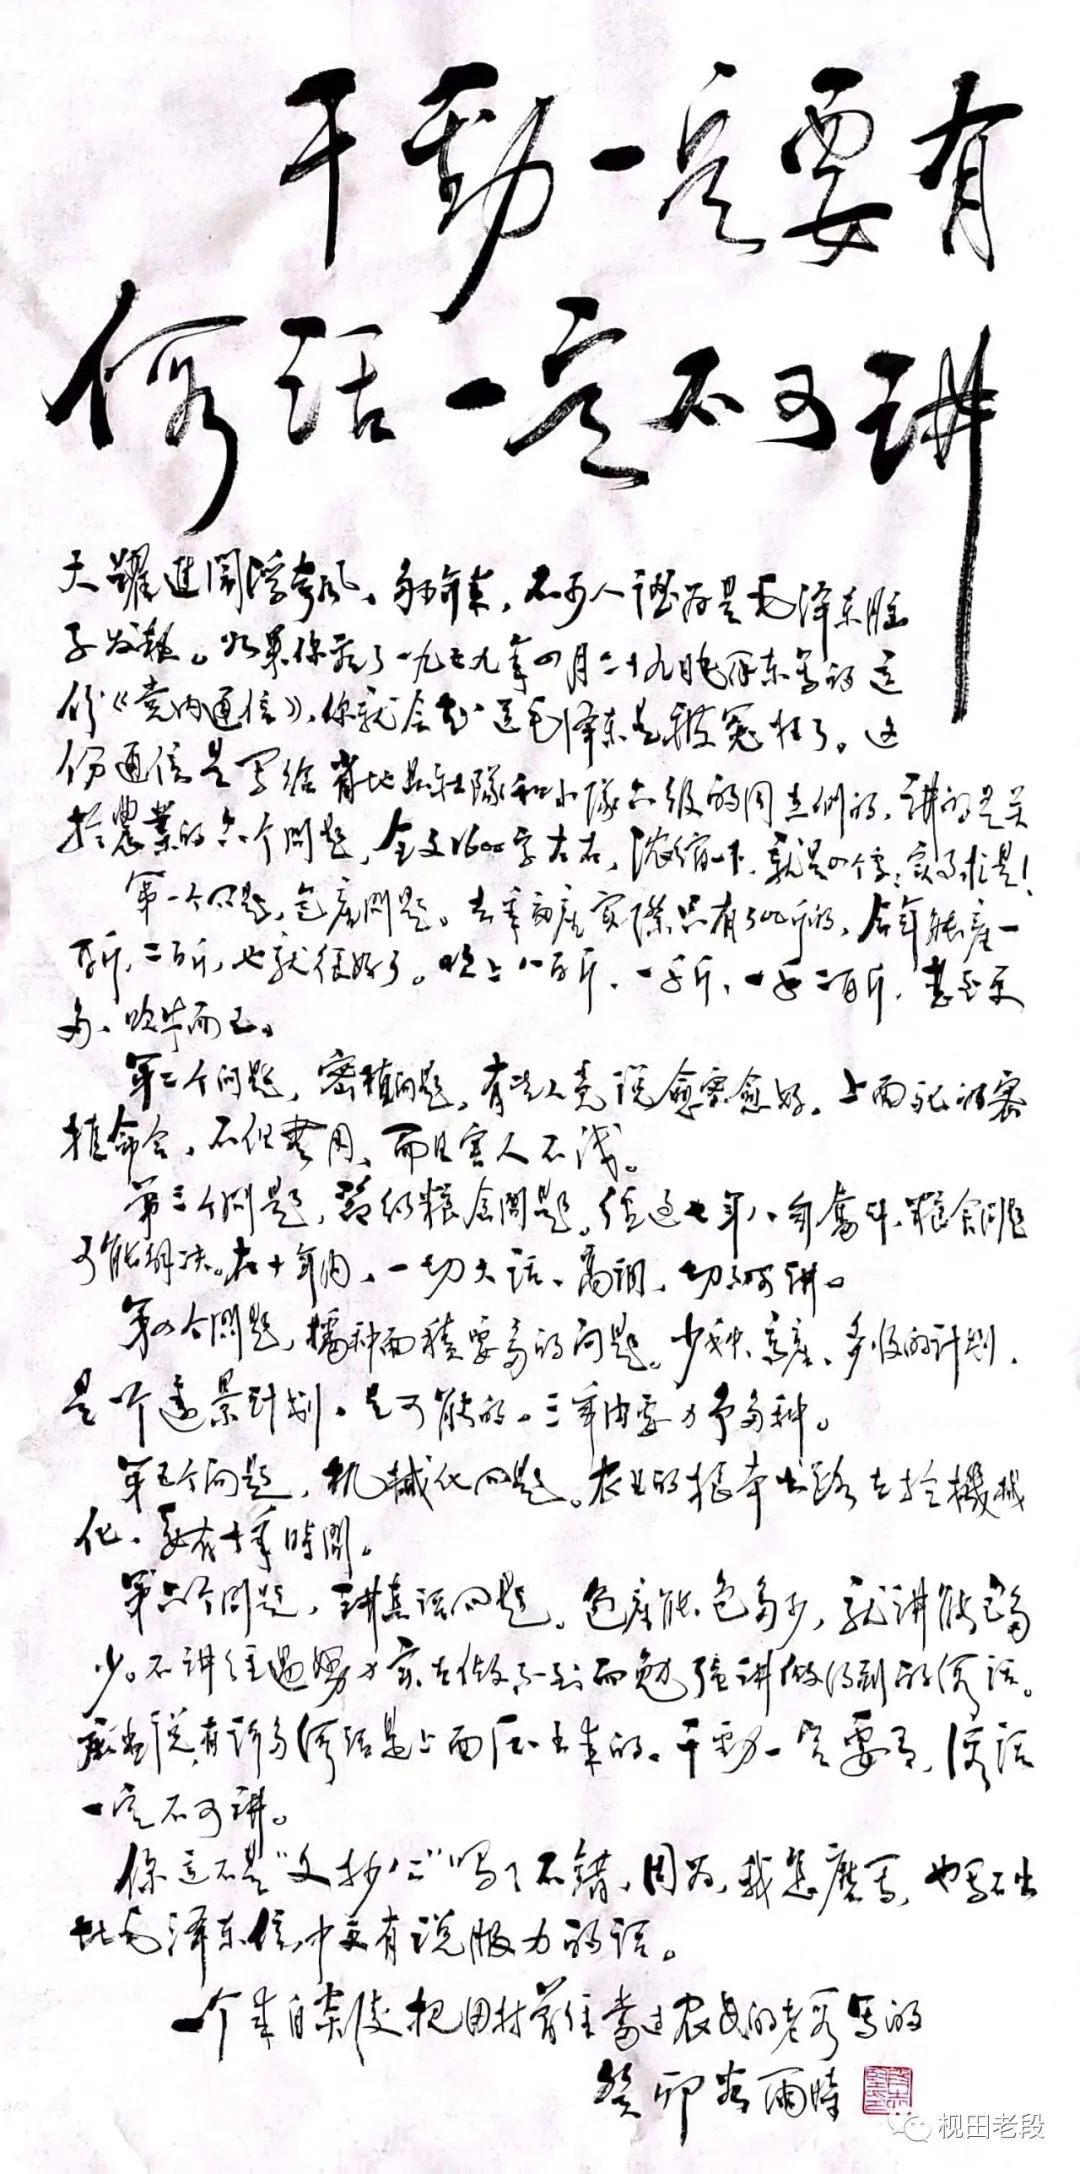 干劲一定要有
假话一定不可讲
大躍進闹浮夸风、多年来，不少人認为是毛泽东脑
子发热。如果你看了一九五九年四月二十九日毛泽东写的这
份《党内通信》，你就会知道毛泽东是被冤枉了。这
份通信是写给省地县社隊和小隊六级的同志們的，讲的是关
於農業的六个問题，全文1600字左右，浓缩一下，就是四个字：实事求是！
第一个问题，包産問题。去年亩産实際只有三百斤的，今年能産一
百斤，二百斤，也就很好了。吹上八百斤、一千斤、一千二百斤，甚至更
多、吹牛而已。
第二个问题，密植问题，有些人竟说愈密愈好。上面死的密
植命令，不但無用，而且害人不浅。
第三个問题，节约粮食問题。经过七年八年奮斗、粮食问题
可能解决。在十年内，一切大话、高调，切不可讲。
第四个問题，播种面積要多的问题。少种、高産、多收的计划，
是个遠景计划，是可能的。三年内要力争多种。
第五个问题，机械化问题。农业的根本出路在於機械
化、要有十年時間。
第六个問题，讲真话问题。包産能包多少，就讲能包多
少。不讲经过努力实在做不到而勉强讲做得到的假话。
应当说，有许多假话是上面压出来的。干劲一定要有，假话
一定不可讲。
你这不是“文抄公”吗？不错，因为，我怎麽写，也写不出
比毛泽东信中更有说服力的话。
一个来自柴陂枧田村曾经当过农民的老段写的
癸卯春爾時
枧田老段